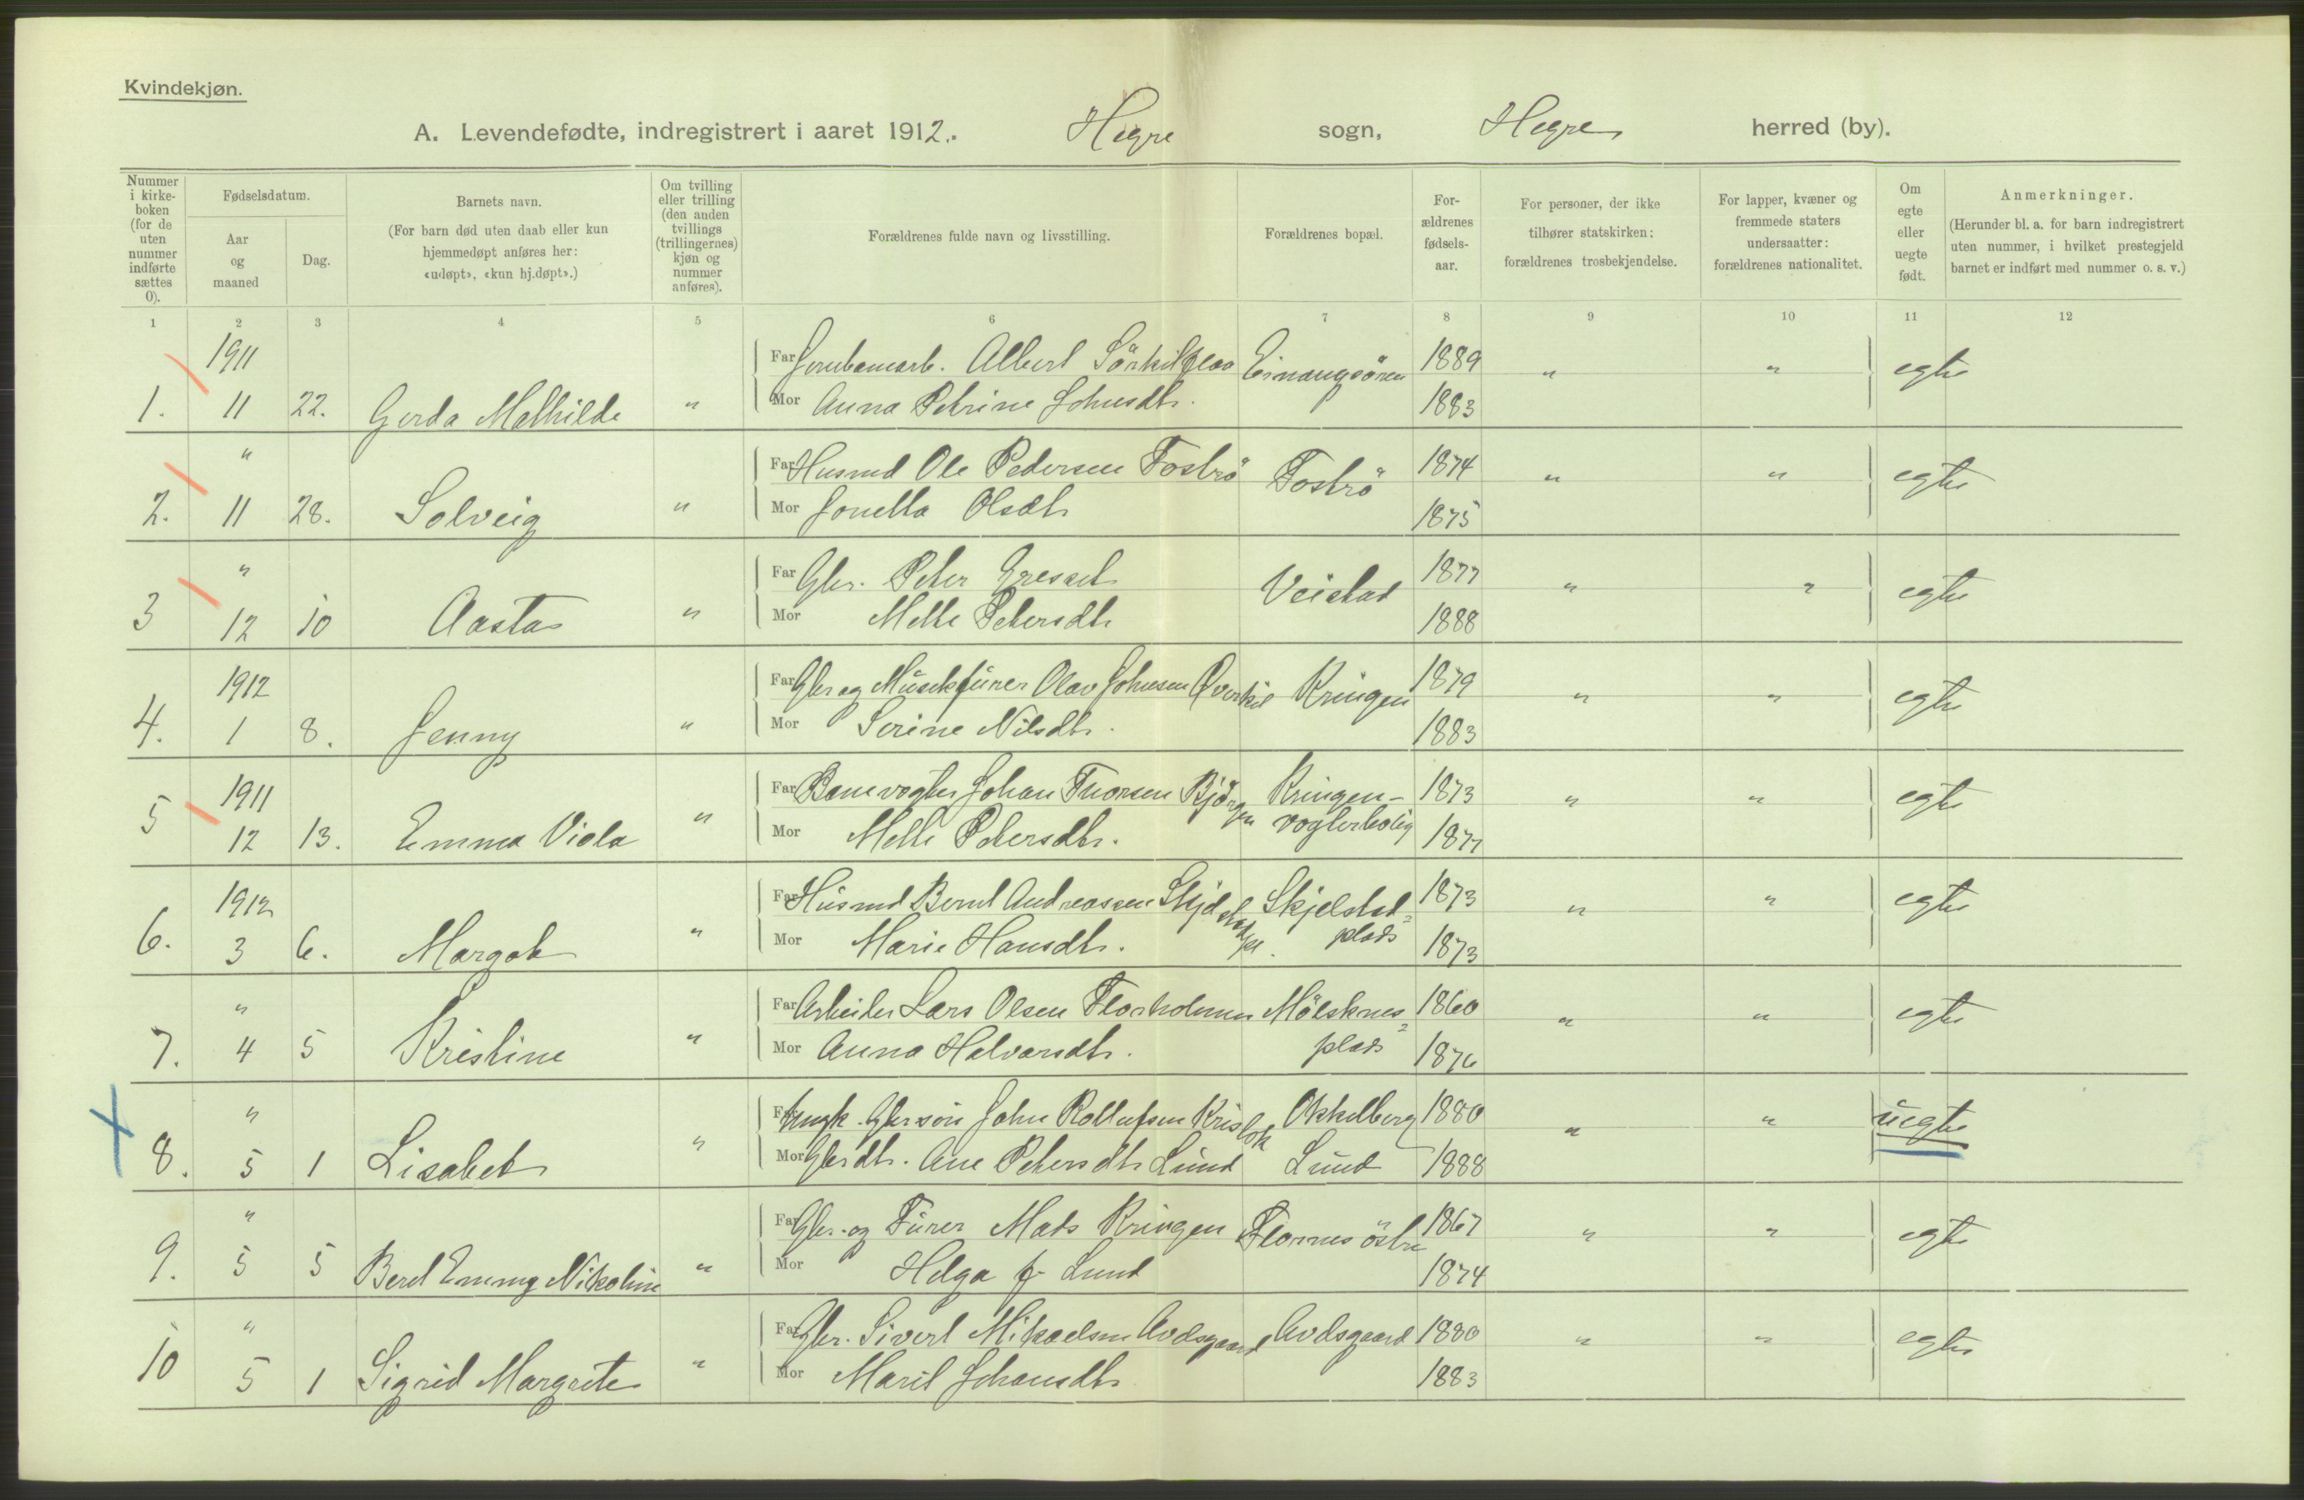 Kvindekjøn.
A. Levendefødte, indregistrert i aaret 1912. Hegre sogn, Hegre herred (by).
Nummer i kirke-boken (for de uten nummer indførte sættes 0).
Fødselsdatum.
Aar og maaned
Dag.
Barnets navn.
(For barn død uten daab eller kun hjemmedøpt anføres her: «udøpt», «kun hj.døpt».)
Om tvilling eller trilling (den anden tvillings (trillingernes) kjøn og nummer anføres).
Forældrenes fulde navn og livsstilling.
Forældrenes bopæl.
For-ældrenes fødsels-aar.
For personer, der ikke tilhører statskirken: forældrenes trosbekjendelse.
For lapper, kvæner og fremmede staters undersaatter: forældrenes nationalitet.
Om egte eller uegte født.
Anmerkninger.
(Herunder bl. a. for barn indregistrert uten nummer, i hvilket prestegjeld barnet er indført med nummer o. s. v.)
1 2 3 4 5 6 7 8 9 10 11 12
1911 Far Jernbanearb. Albert 1889 " " egte
1. 11 22. Gerda Mathilde " Mor Anna Petrine Johnsdtr. 1883
" Far Husmd Ole Pedersen Fosbrö Fosbrö 1874 " " egte
2. 11 28. Solveig " Mor Jonetta Olsdtr 1875
" Far Gbr. Peter Gresset Veistad 1877 " " egte
3 12 10 Aasta " Mor Mette Petersdtr 1888
1912 Far Gbr og Musikfurer Olav Johnsen Øverkil Kringen 1879 " " egte
4. 1 8. Jenny " Mor Serine Nilsdtr. 1883
1911 Far Banevogter Johan Thorsen Bjørgen Kringen- 1873 " " egte
5 12 13. Emma Viola " Mor Mette Petersdtr. vogterbolig 1877
1912 Far Husmd Bernt Andreassen Skjelstadpl. Skjelstad- 1873 " " egte
6. 3 6. Margot " Mor Marie Hansdtr. plads 1873
" Far Arbeider Lars Olsen Florholmen Mölsknes- 1860 " " egte
7. 4 5 Kristine " Mor Anna Halvarsdtr. plads 1876
" Far Ungk. Gbrsön John Rollufsen Okkelberg 1880 " " uegte
8. 5 1 Lisabet " Mor Gbrdtr. Ane Petersdtr Lund Lund 1888
" Far Gbr. og Furer Mats Kringen Flornes östre 1867 " " egte
9. 5 5 Beret Emmy Nikoline " Mor Helga f. Lund 1874
" Far Gbr. Sivert Mikaelsen Avdsgaard Avdsgaard 1880 " " egte
10 5 1 Sigrid Margrete " Mor Marit Johansdtr 1883